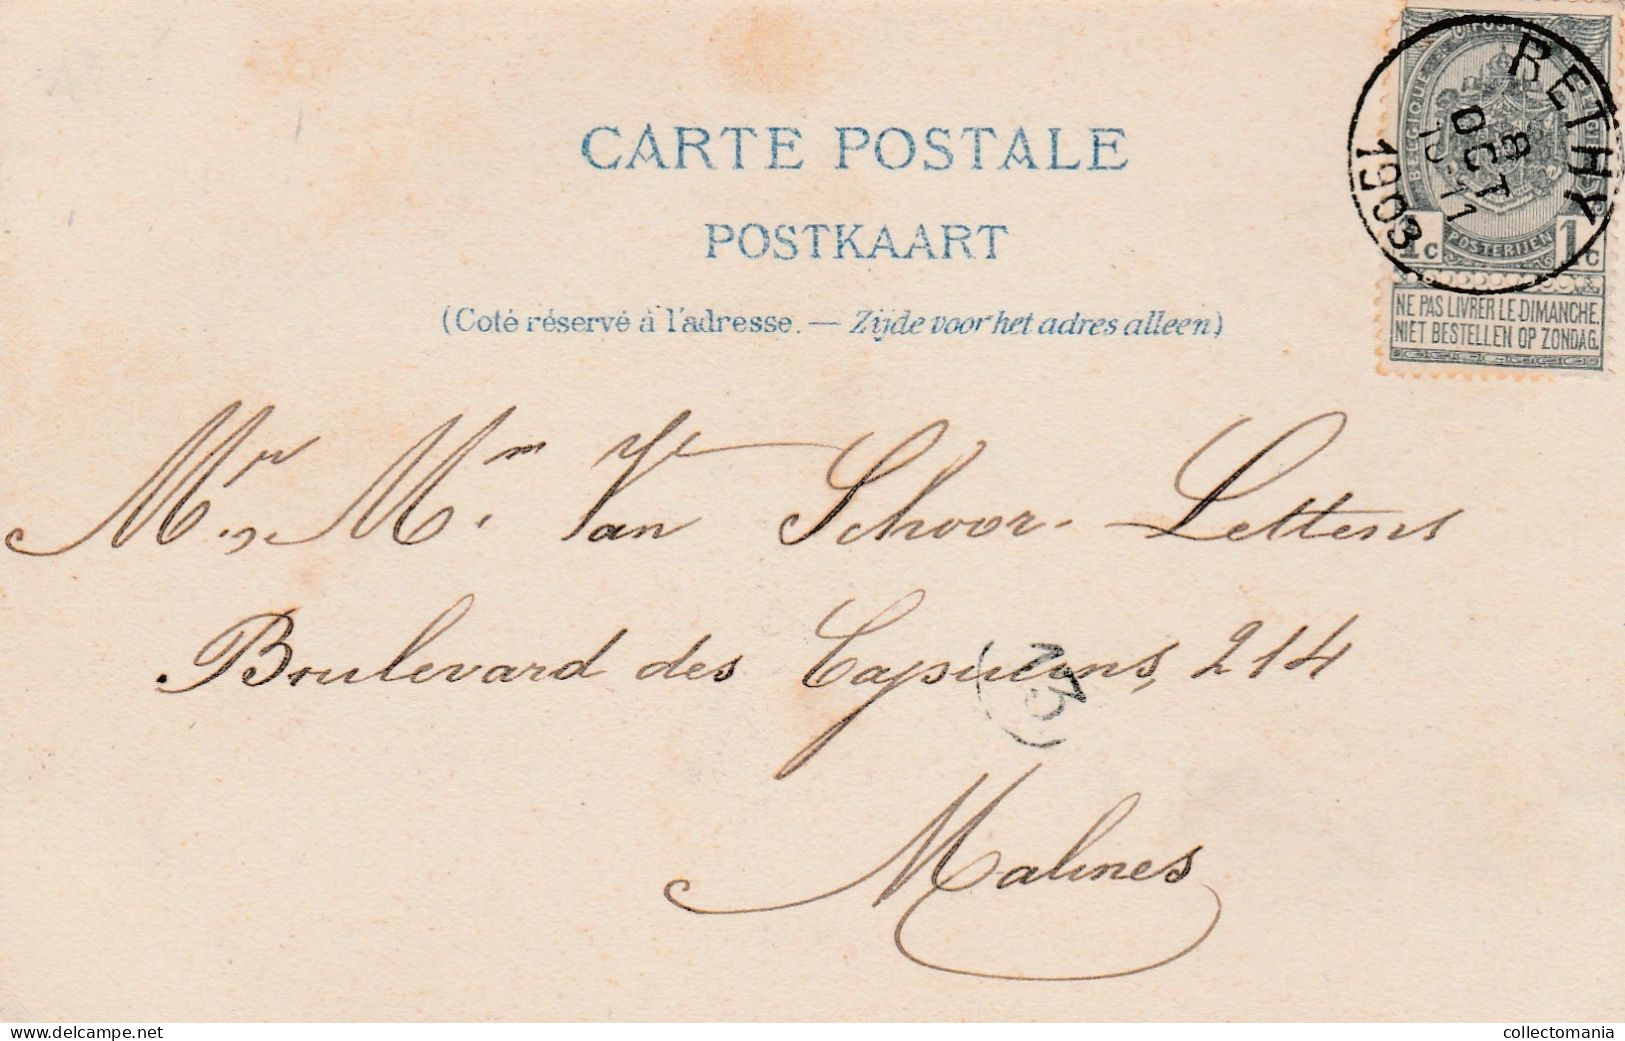 CARTE POSTALE
POSTKAART
(Coté réservé à l'adresse. — Zijde voor het adres alleen)
RETHY
8
OCT
1903
BELGIQUE
POSTERIJEN
1c 1c
NE PAS LIVRER LE DIMANCHE.
NIET BESTELLEN OP ZONDAG.
Mr, Mm. Van Schoor-Lettens
Boulevard des Capucins, 214
Malines
www.delcampe.net
collectomania